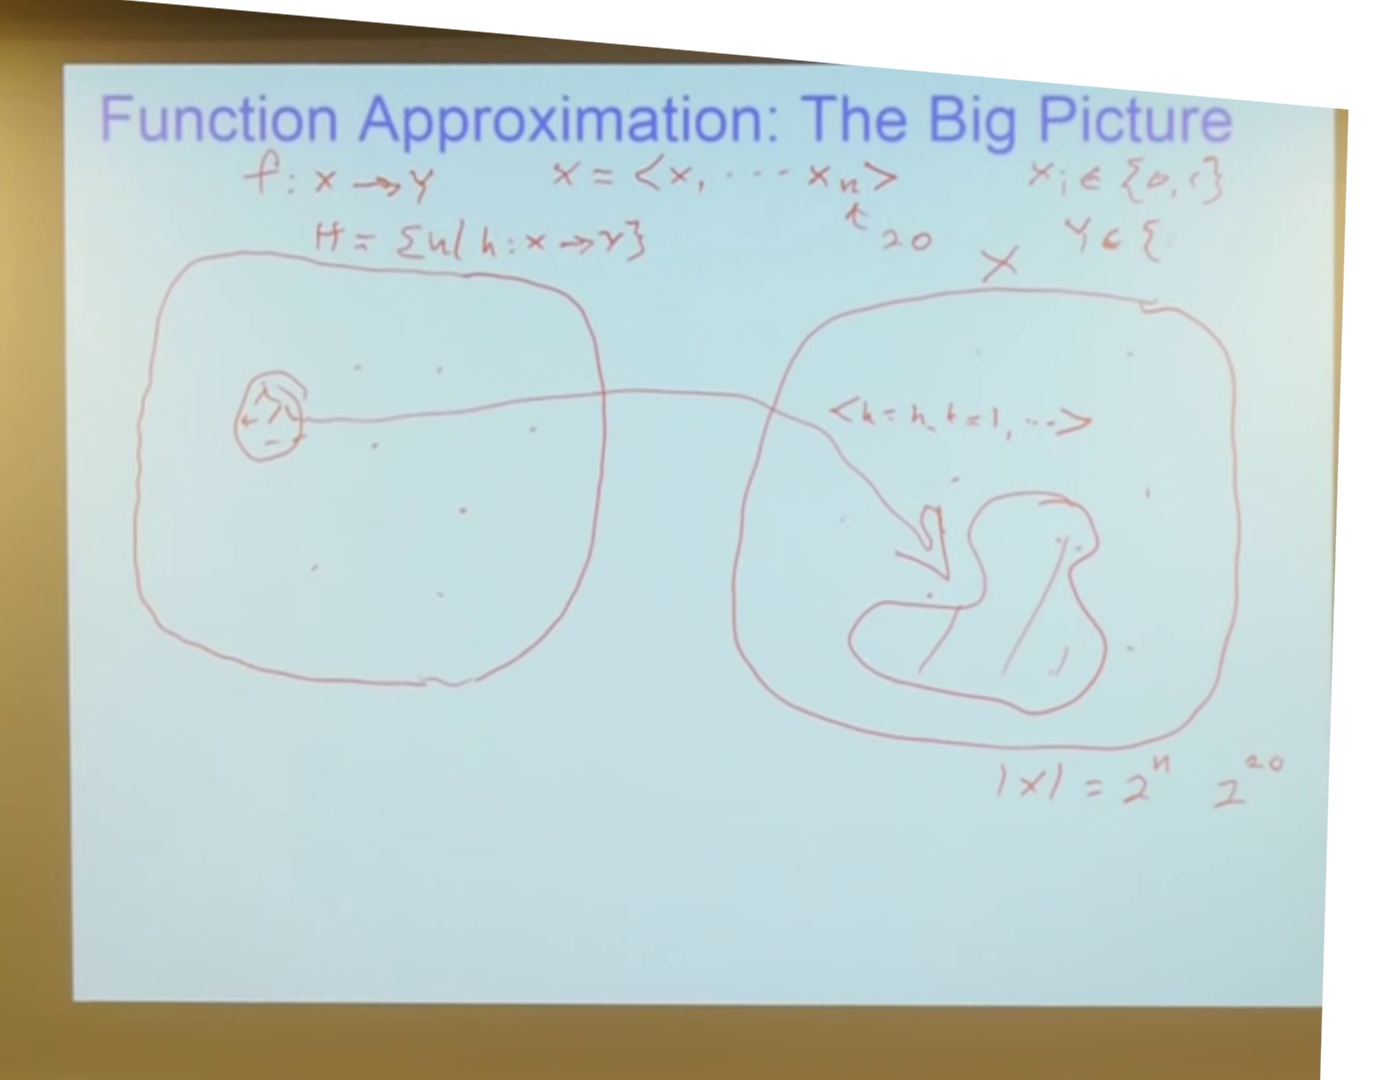 Function Approximation: The Big Picture
f: x → Y x = <x, ··· xn> xi ∈ {0,1}
H = {h| h: x → Y} 20 Y ∈ {
X
<h = h, t = 1, ...>
|x| = 2^n 2^20